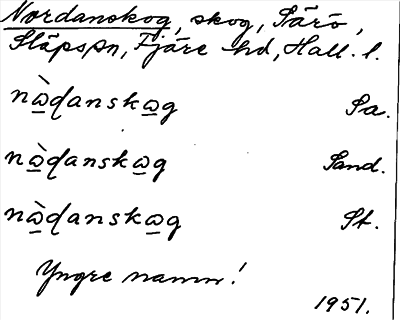 Nordanskog, skog, Särö,
Släpspn, Fjäre hd, Hall. l.
nὼ̲ḍanskω̲g Sa.
nὼ̲ḍanskω̲g Sand.
nὼ̲ḍanskω̲g St.
Yngre namn!
1951.